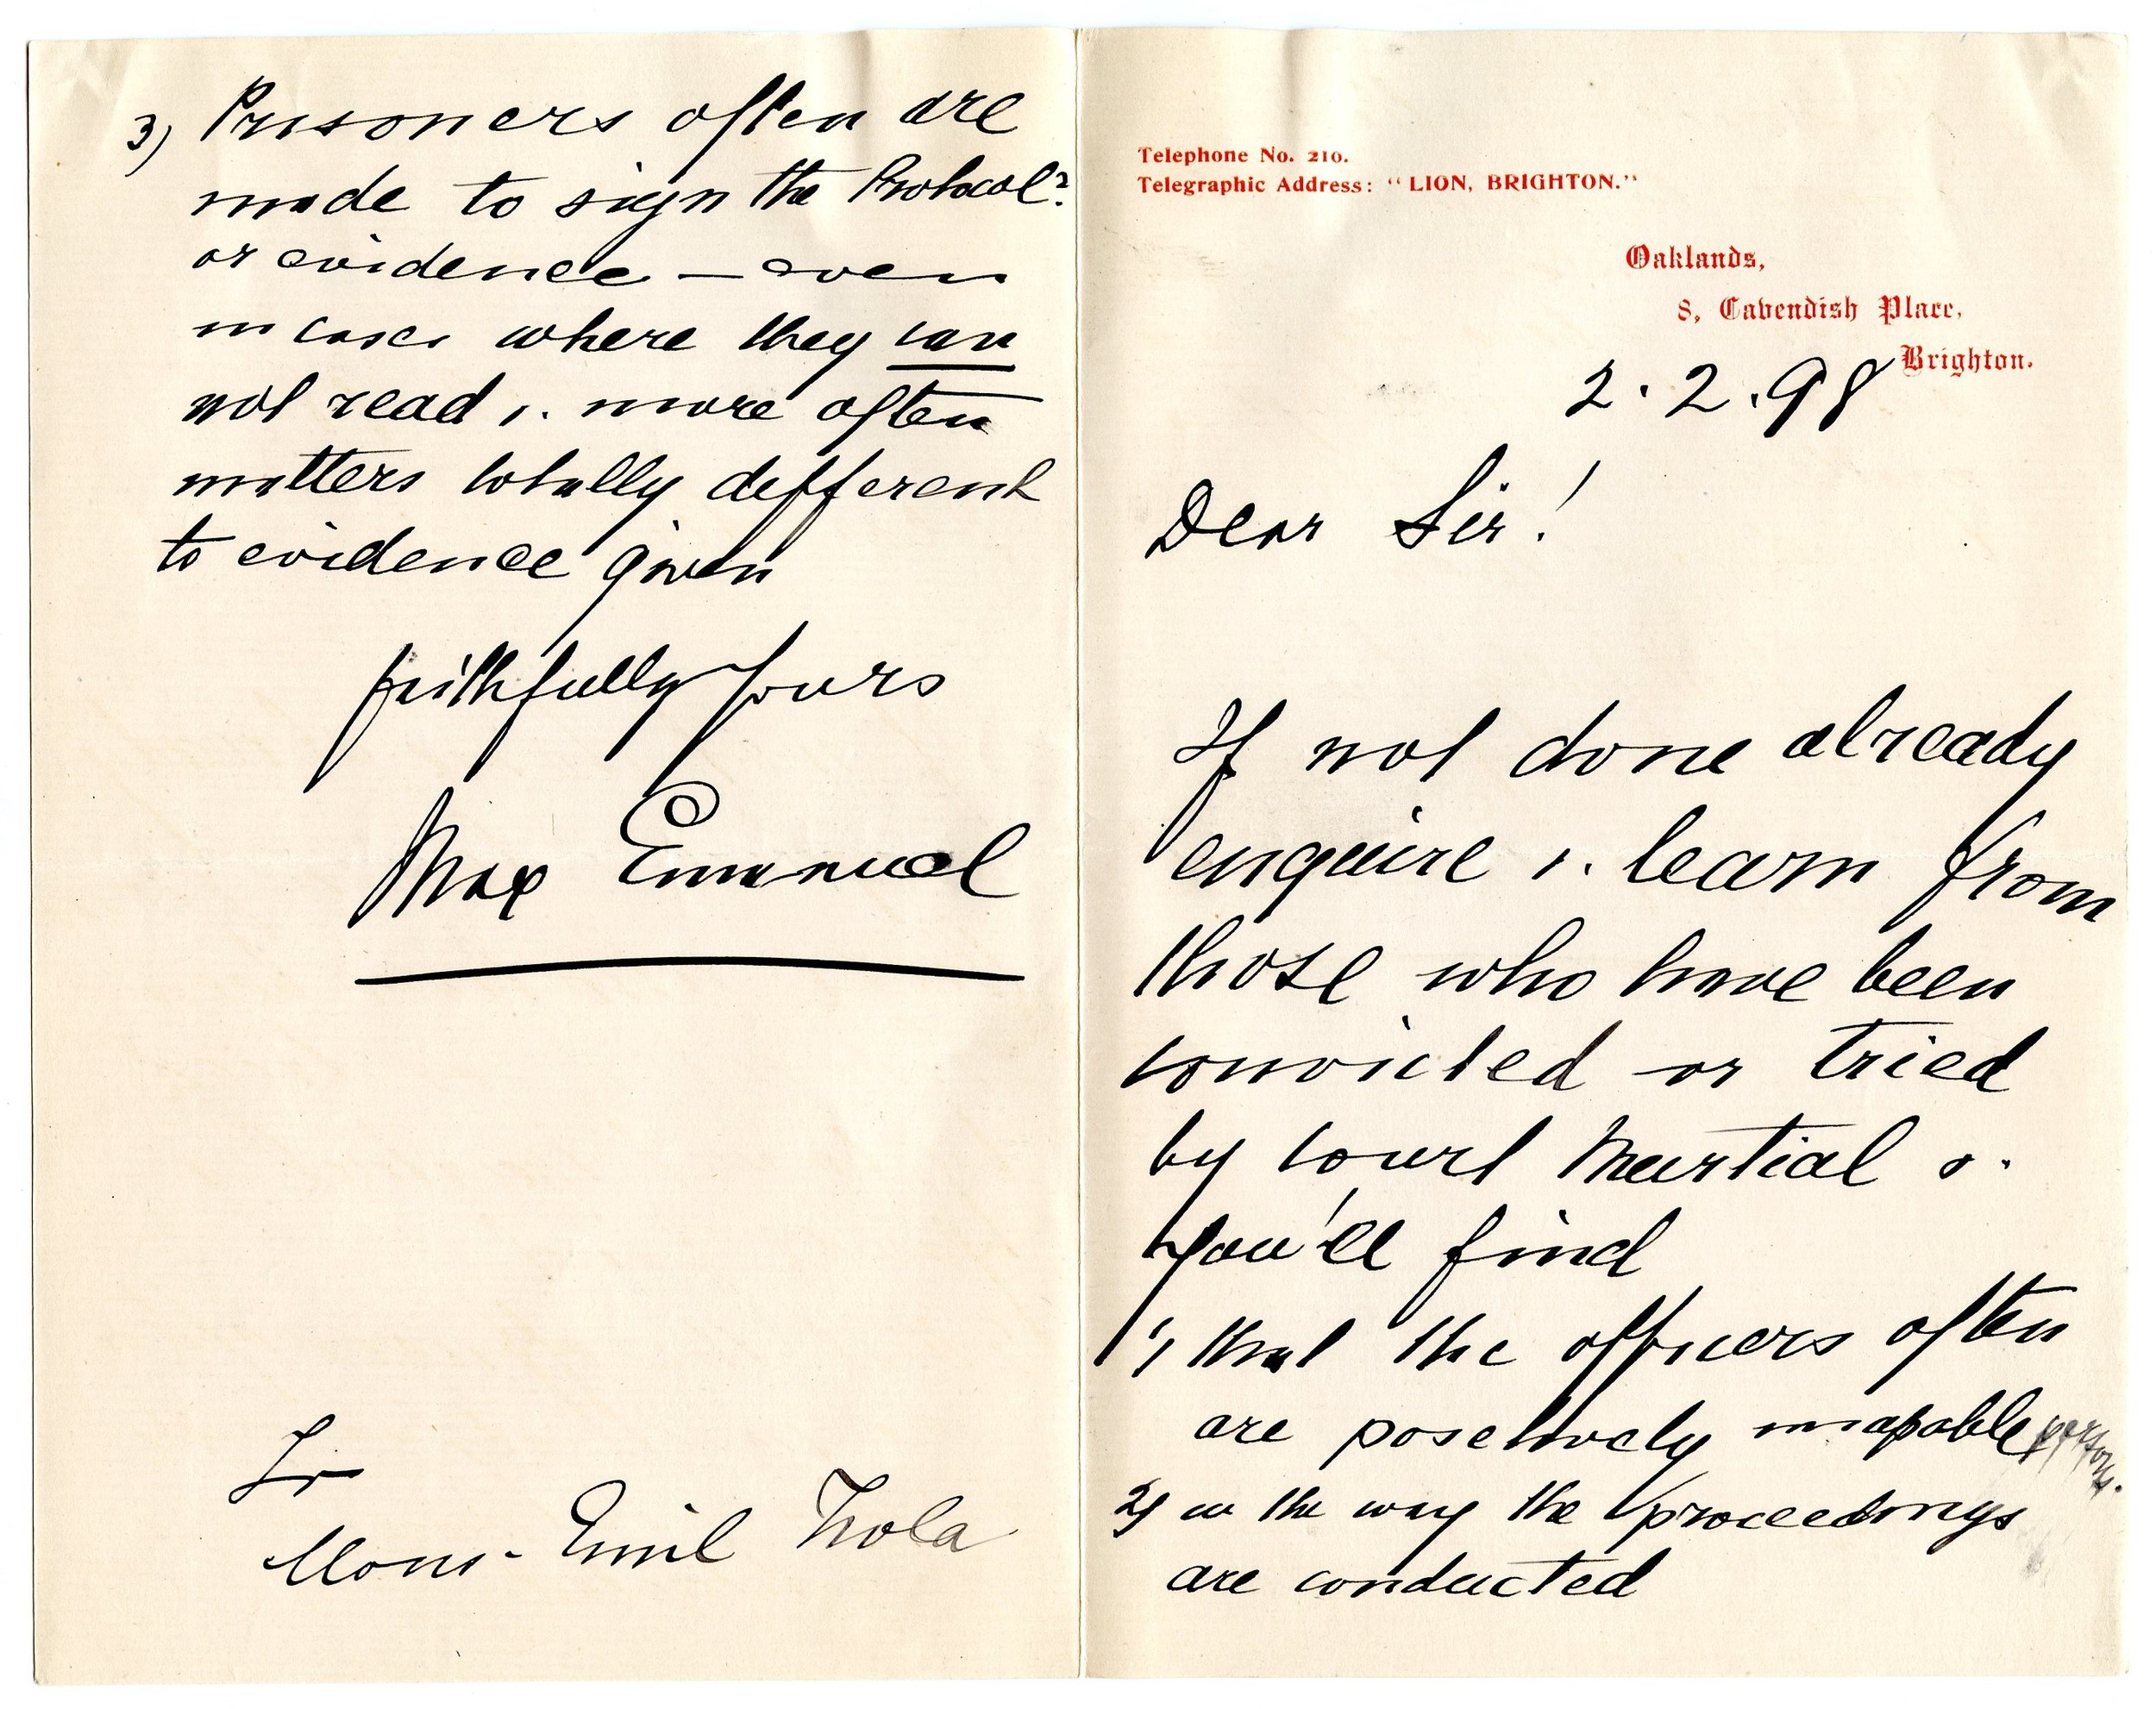 Telephone No. 210.
Telegraphic Address: "LION, BRIGHTON."
Oaklands,
8, Cavendish Place,
Brighton.
2.2.98
Dear Sir!
If not done already
enquire &. learn from
those who have been
convicted or tried
by Court Martial &.
you'll find
1) that the officers often
are posetively incapable persons.
2) in the way the proceedings
are conducted
3) Prisoners often are
made to sign the Protocol?
or evidence – even
in cases where they can
not read &. more often
matters totally defferent
to evidence given
faithfully yours
Max Emanuel
To
Mons. Emil Zola